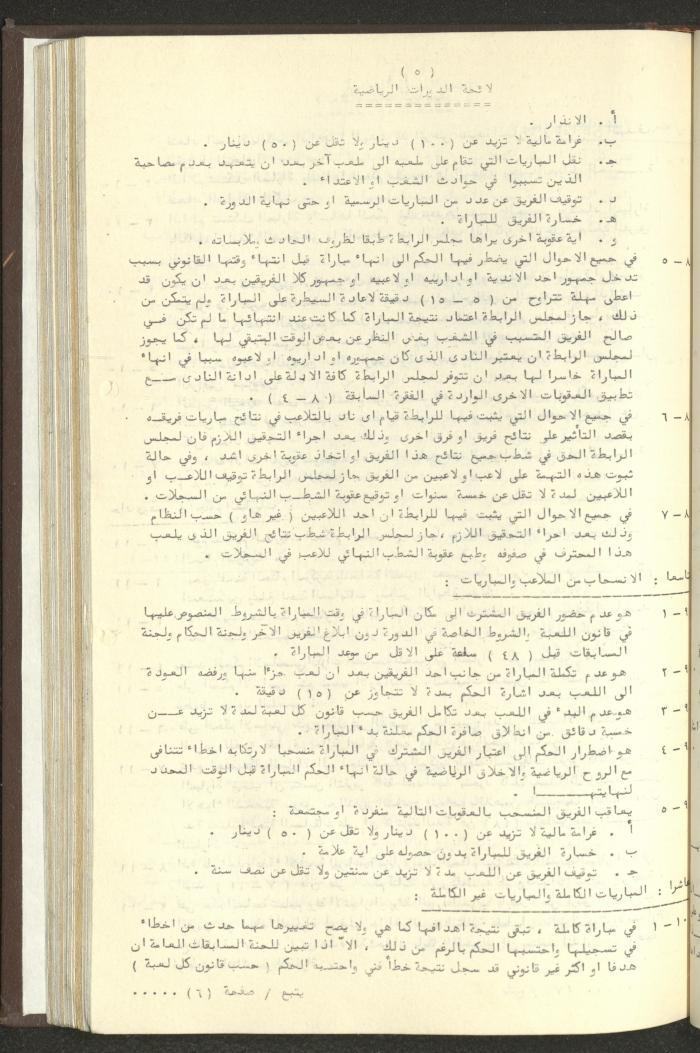 ( ٥ )
لائحة الدورات الرياضية
أ . الانذار .
ب. غرامة مالية لا تزيد عن (١٠٠) دينار ولا تقل عن (٥٠) دينار .
جـ. نقل المباريات التي تقام على ملعبه الى ملعب آخر بعد ان يتعهد بعدم مصاحبة
الذين تسببوا في حوادث الشغب او الاعتداء .
د . توقيف الفريق عن عدد من المباريات الرسمية او حتى نهاية الدورة .
هـ. خسارة الفريق للمباراة .
و . اية عقوبة اخرى يراها مجلس الرابطة طبقا لظروف الحادث وملابساته .
٨ـ٥ في جميع الاحوال التي يضطر فيها الحكم الى انهاء مباراة قبل انتهاء وقتها القانوني بسبب
تدخل جمهور احد الاندية او ادارييه او لاعبيه او جمهور كلا الفريقين بعد ان يكون قد
اعطى مهلة تتراوح من (٥ – ١٥) دقيقة لاعادة السيطرة على المباراة ولم يتمكن من
ذلك ، جاز لمجلس الرابطة اعتماد نتيجة المباراة كما كانت عند انتهائها ما لم تكن فــي
صالح الفريق المتسبب في الشغب بغض النظر عن بعض الوقت المتبقي لها ، كما يجوز
لمجلس الرابطة ان يعتبر النادى الذى كان جمهوره او اداريوه او لاعبوه سببا في انهاء
المباراة خاسرا لها بعد ان تتوفر لمجلس الرابطة كافة الادلة على ادانة النادى مـــع
تطبيق العقوبات الاخرى الواردة في الفقرة السابقة (٨ – ٤) .
٨ـ٦ في جميع الاحوال التي يثبت فيها للرابطة قيام اى ناد بالتلاعب في نتائج مباريات فريقــه
بقصد التأثير على نتائج فريق او فرق اخرى وذلك بعد اجراء التحقيق اللازم فان لمجلس
الرابطة الحق في شطب جميع نتائج هذا الفريق او اتخاذ عقوبة اخرى اشد ، وفي حالة
ثبوت هذه التهمة على لاعب او لاعبين من الفريق جاز لمجلس الرابطة توقيف اللاعــب أو
اللاعبين لمدة لا تقل عن خمسة سنوات او توقيع عقوبة الشطــب النهائي من السجلات .
٨ـ٧ في جميع الاحوال التي يثبت فيها للرابطة ان احد اللاعبين ( غير هاو ) حسب النظام
وذلك بعد اجراء التحقيق اللازم ، جاز لمجلس الرابطة شطب نتائج الفريق الذى يلعب
هذا المحترف في صفوفه وطبع عقوبة الشطب النهائي للاعب في السجلات .
تاسعا : الانسحاب من الملاعب والمباريات :
٩ـ١ هو عدم حضور الفريق المشترك الى مكان المباراة في وقت المباراة بالشروط المنصوص عليها
في قانون اللعبة والشروط الخاصة في الدورة دون ابلاغ الفريق الآخر ولجنة الحكام ولجنة
المسابقات قبل ( ٤٨ ) ساعة على الاقل من موعد المباراة .
٩ـ٢ هو عدم تكملة المباراة من جانب احد الفريقين بعد ان لعب جزءا منها ورفضه العودة
الى اللعب بعد اشارة الحكم بمدة لا تتجاوز عن (١٥) دقيقة .
٩ـ٣ هو عدم البدء في اللعب بعد تكامل الفريق حسب قانون كل لعبة لمدة لا تزيد عـــن
خمسة دقائق من انطلاق صافرة الحكم معلنة بدء المباراة .
٩ـ٤ هو اضطرار الحكم الى اعتبار الفريق المشترك في المباراة منسحبا لارتكابه اخطاء تتنافى
مع الروح الرياضية والاخلاق الرياضية في حالة انهاء الحكم المباراة قبل الوقت المحدد
لنهايتهــــــا .
٩ـ٥ يعاقب الفريق المنسحب بالعقوبات التالية منفردة او مجتمعة :
أ . غرامة مالية لا تزيد عن (١٠٠) دينار ولا تقل عن ( ٥٠ ) دينار .
ب . خسارة الفريق للمباراة بدون حصوله على اية علامة .
جـ . توقيف الفريق عن اللعب مدة لا تزيد عن سنتين ولا تقل عن نصف سنة .
عاشرا : المباريات الكاملة والمباريات غير الكاملة :
١٠ـ١ في مباراة كاملة ، تبقى نتيجة اهدافها كما هي ولا يصح تغييرها مهما حدث من اخطاء
في تسجيلها واحتسبها الحكم بالرغم من ذلك ، الا اذا تبين للجنة المسابقات العامة ان
هدفا او اكثر غير قانوني قد سجل نتيجة خطأ فني واحتسبه الحكم ( حسب قانون كل لعبة )
يتبع / صفحة (٦) .....